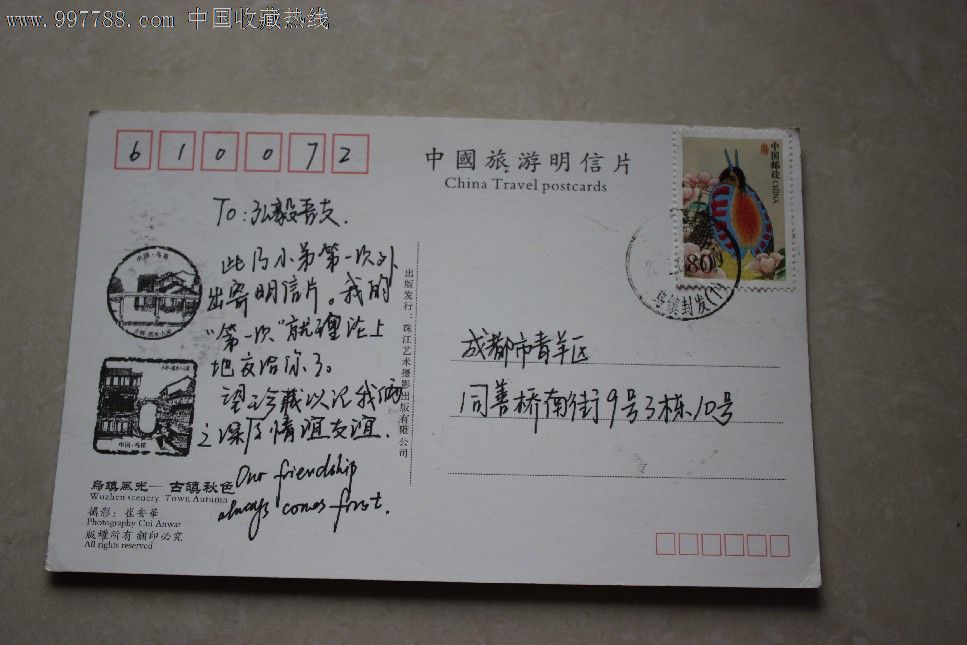 www.997788.com 中国收藏热线
610072
中國旅游明信片
China Travel postcards
中国邮政 CHINA
80
乌镇封发(1)
To:弘毅吾友.
中国·乌镇
此乃小弟第一次外
出寄明信片。我的
“第一次”就理论上
地交给你了。
望珍藏以记我俩
之深厚情谊友谊.
Our friendship
always comes first.
中国·乌镇
出版发行:珠江艺术摄影出版有限公司
成都市青羊区
同善桥南街9号3栋10号
乌镇风光—古镇秋色
Wuzhen scenery Town Autumn
攝影:崔安華
Photography Cui Anwar
版權所有 翻印必究
All rights reserved